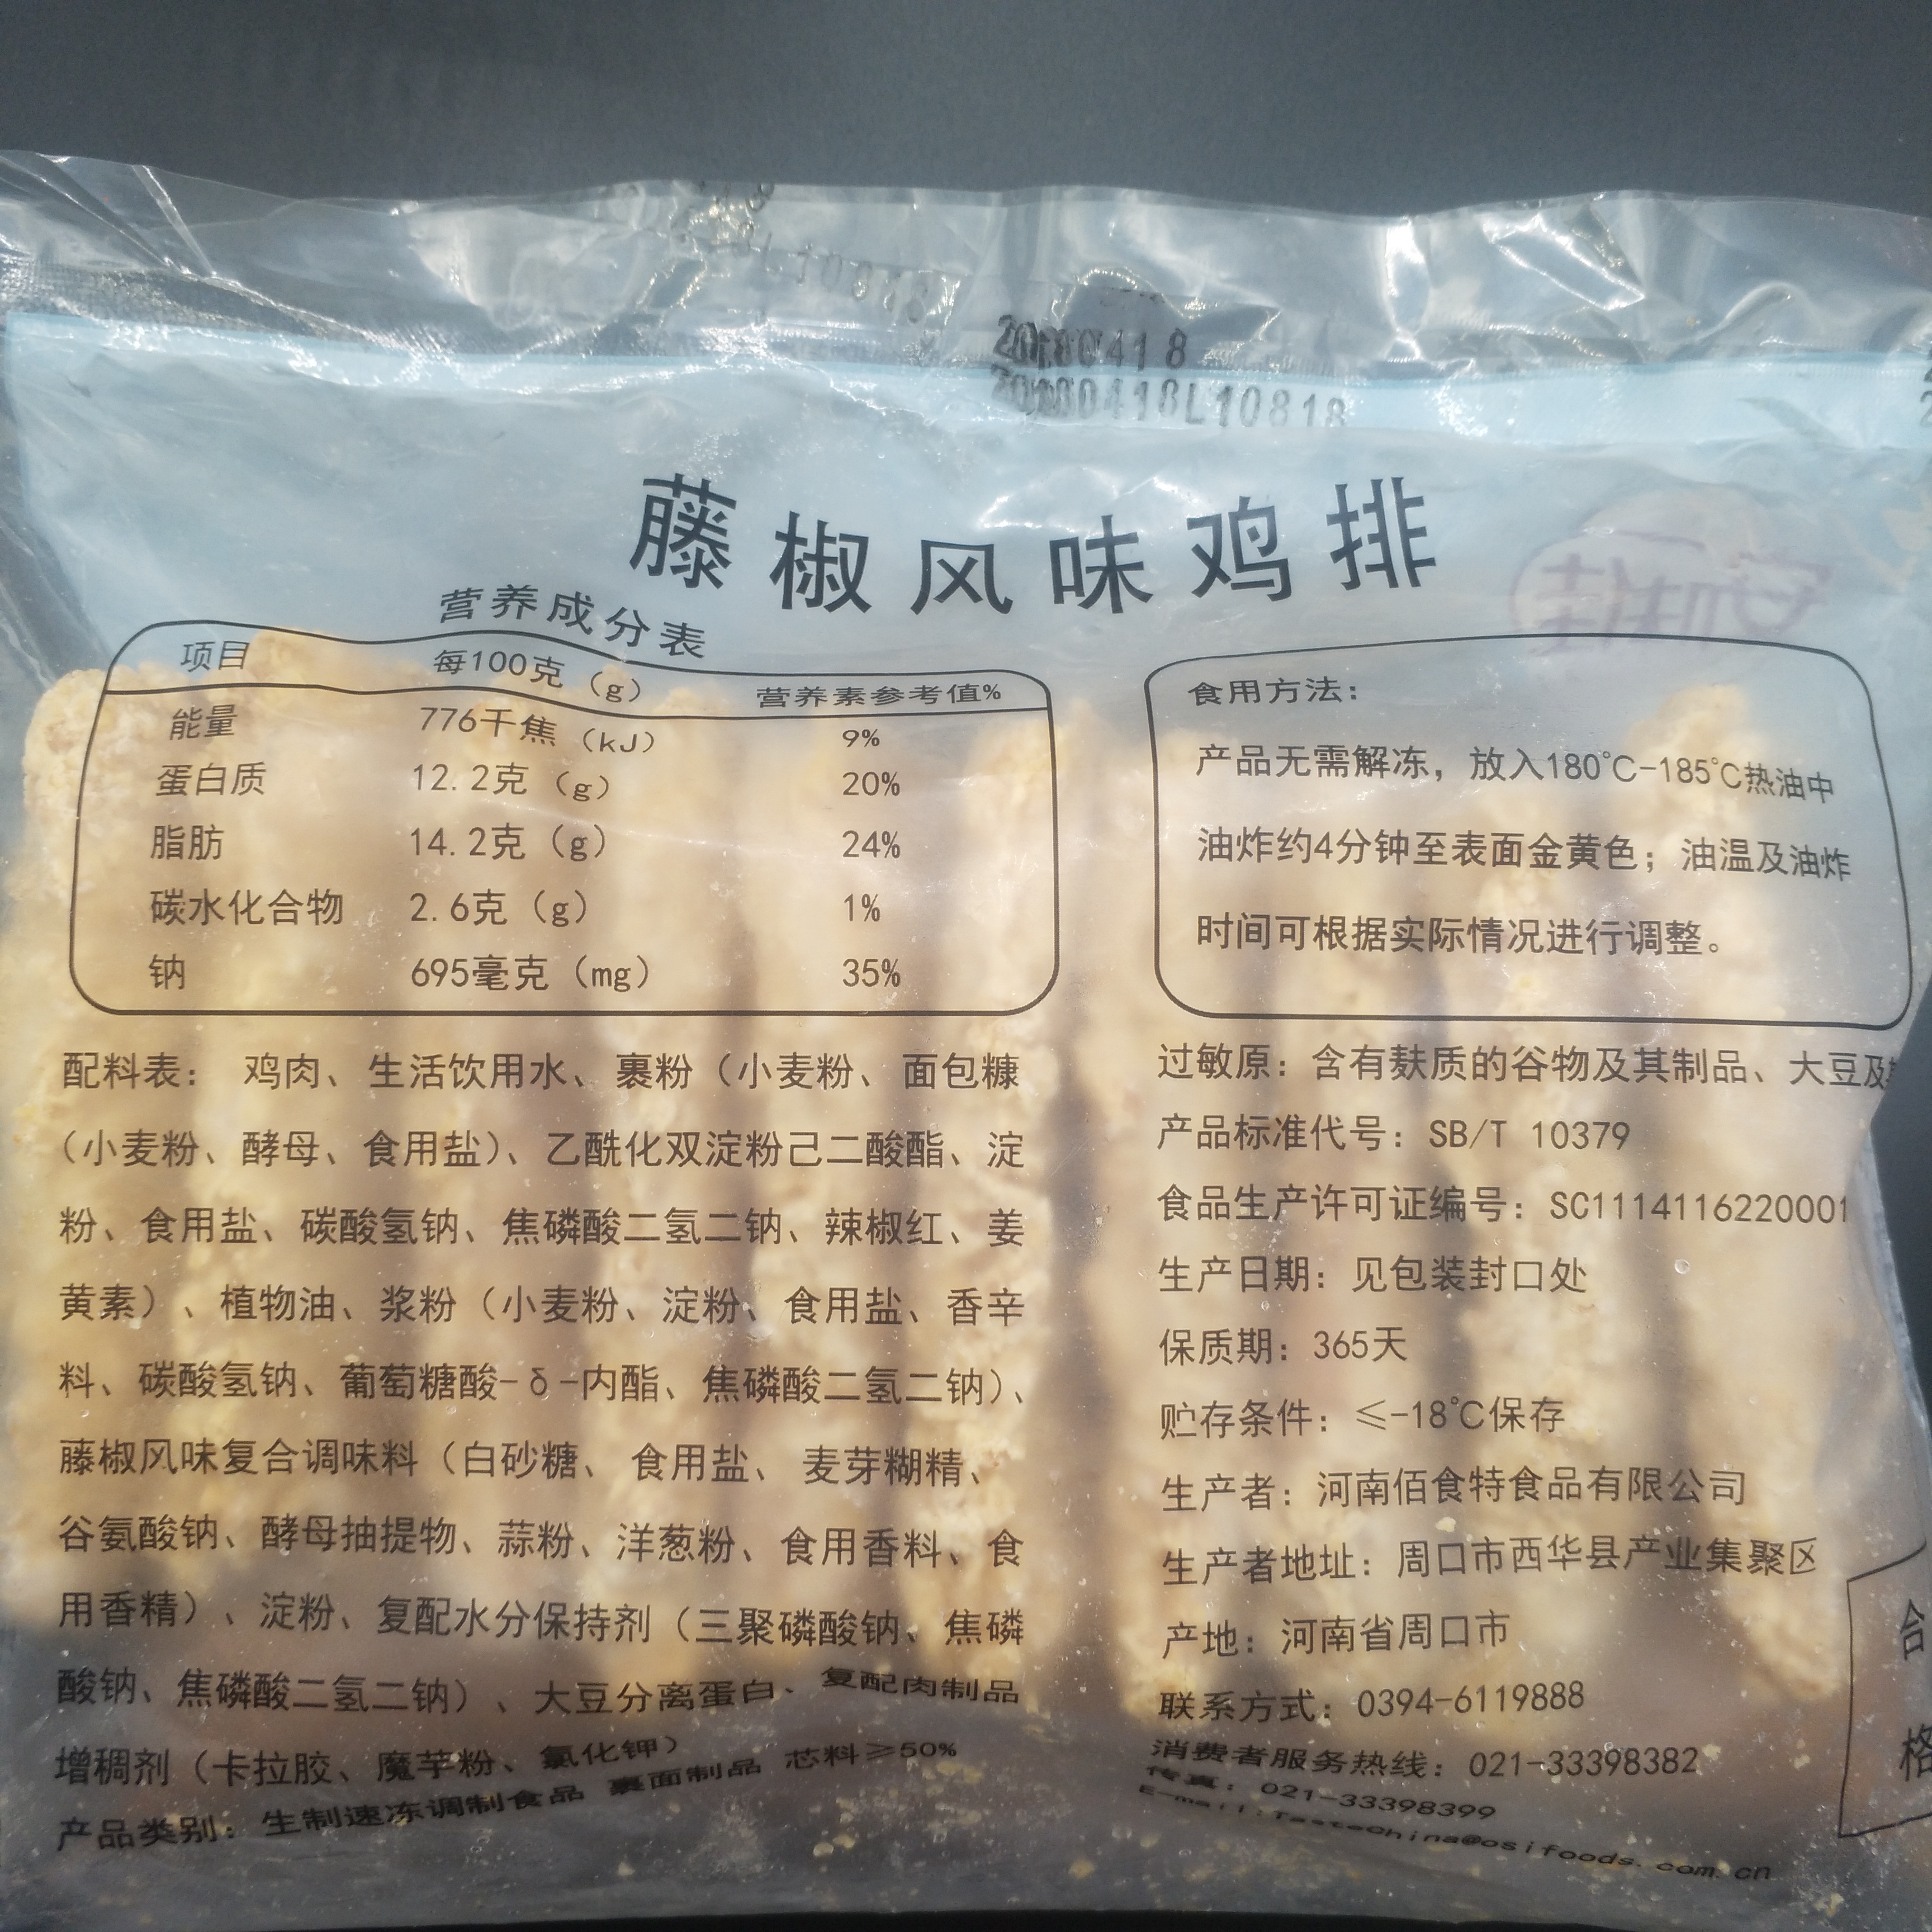 20180418
20180418L10818
藤椒风味鸡排
营养成分表
项目 每100克（g） 营养素参考值%
能量 776千焦（kJ） 9%
蛋白质 12.2克（g） 20%
脂肪 14.2克（g） 24%
碳水化合物 2.6克（g） 1%
钠 695毫克（mg） 35%
食用方法：
产品无需解冻，放入180℃-185℃热油中
油炸约4分钟至表面金黄色；油温及油炸
时间可根据实际情况进行调整。
配料表： 鸡肉、生活饮用水、裹粉（小麦粉、面包糠
（小麦粉、酵母、食用盐）、乙酰化双淀粉己二酸酯、淀
粉、食用盐、碳酸氢钠、焦磷酸二氢二钠、辣椒红、姜
黄素）、植物油、浆粉（小麦粉、淀粉、食用盐、香辛
料、碳酸氢钠、葡萄糖酸-δ-内酯、焦磷酸二氢二钠）、
藤椒风味复合调味料（白砂糖、食用盐、麦芽糊精、
谷氨酸钠、酵母抽提物、蒜粉、洋葱粉、食用香料、食
用香精）、淀粉、复配水分保持剂（三聚磷酸钠、焦磷
酸钠、焦磷酸二氢二钠）、大豆分离蛋白、复配肉制品
增稠剂（卡拉胶、魔芋粉、氯化钾）
产品类别：生制速冻调制食品 裹面制品 芯料≥50%
过敏原：含有麸质的谷物及其制品、大豆及
产品标准代号：SB/T 10379
食品生产许可证编号：SC1114116220001
生产日期：见包装封口处
保质期：365天
贮存条件：≤-18℃保存
生产者：河南佰食特食品有限公司
生产者地址：周口市西华县产业集聚区
产地：河南省周口市
联系方式：0394-6119888
消费者服务热线：021-33398382
传真：021-33398399
E-mail:TasteChina@osifoods.com.cn
合
格